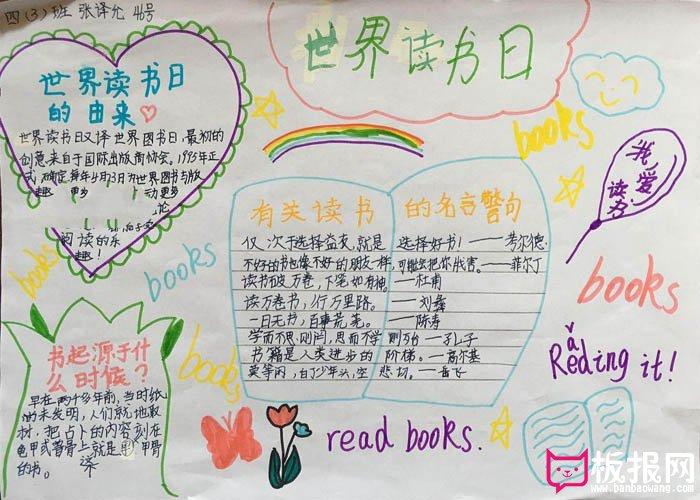 四(3)班 张译允 46号
世界读书日
世界读书日
的由来
世界读书日又译世界图书日,最初的
创意来自于国际出版商协会。1995年正
式确定每年4月23日为世界图书与版
趣 更多 动更多
论
阅读的乐
趣!
books
books
books
books
books
我爱
读书
有关读书 的名言警句
仅次于选择益友,就是 选择好书!——考尔德
不好的书也像不好的朋友一样,可能会把你戕害。——菲尔丁
读书破万卷,下笔如有神。——杜甫
读万卷书,行万里路。——刘彝
一日无书,百事荒芜。——陈寿
学而不思则罔,思而不学则殆——孔子
书籍是人类进步的阶梯。——高尔基
莫等闲,白了少年头,空悲切。——岳飞
书起源于什
么时候?
早在两千多年前,当时纸
尚未发明,人们就地取
材,把占卜的内容刻在
龟甲或兽骨上就是 甲骨
的书。
read books.
Reading it!
板报网
www.banbaowang.com